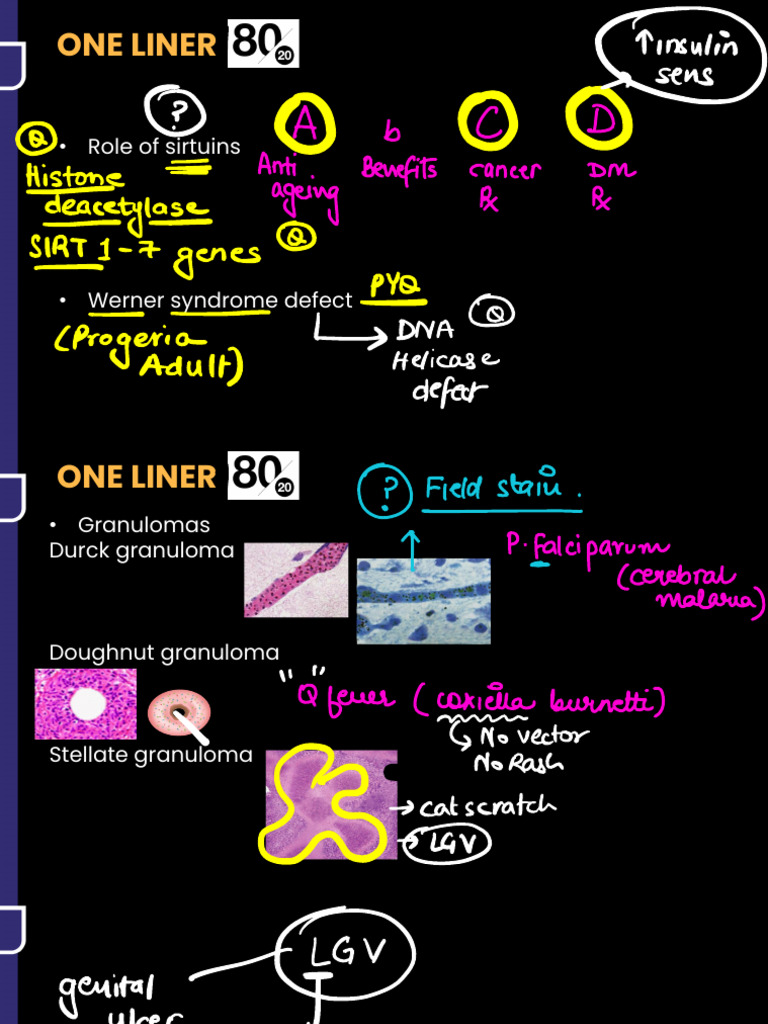 ONE LINER 80 20
↑ insulin
sens
?
Q
• Role of sirtuins
A b C D
Anti ageing
Benefits
cancer Rx
DM Rx
Histone
deacetylase
SIRT 1-7 genes
Q
• Werner syndrome defect PYQ
(Progeria
Adult)
→ DNA
Helicase
defect
Q
ONE LINER 80 20
? Field stain.
• Granulomas
Durck granuloma
P. falciparum
(cerebral
malaria)
Doughnut granuloma
"Q" fever (coxiella burnetti)
No vector
No Rash
Stellate granuloma
→ cat scratch
→ LGV
LGV
genital
ulcer